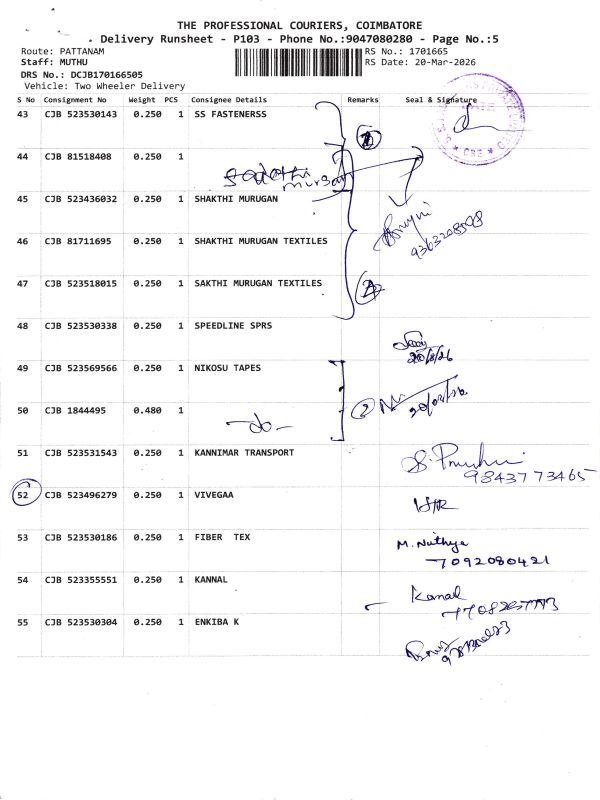 THE PROFESSIONAL COURIERS, COIMBATORE
Delivery Runsheet - P103 - Phone No.:9047080280 - Page No.:5
Route: PATTANAM
RS No.: 1701665
Staff: MUTHU
RS Date: 20-Mar-2026
DRS No.: DCJB170166505
Vehicle: Two Wheeler Delivery
S No Consignment No Weight PCS Consignee Details Remarks Seal & Signature
43 CJB 523530143 0.250 1 SS FASTENERSS
44 CJB 81518408 0.250 1
murgan
45 CJB 523436032 0.250 1 SHAKTHI MURUGAN
46 CJB 81711695 0.250 1 SHAKTHI MURUGAN TEXTILES
47 CJB 523518015 0.250 1 SAKTHI MURUGAN TEXTILES
48 CJB 523530338 0.250 1 SPEEDLINE SPRS
49 CJB 523569566 0.250 1 NIKOSU TAPES
50 CJB 1844495 0.480 1
-do-
2
51 CJB 523531543 0.250 1 KANNIMAR TRANSPORT
9843773465
52 CJB 523496279 0.250 1 VIVEGAA
53 CJB 523530186 0.250 1 FIBER TEX
M. Nuthya
7092080421
54 CJB 523355551 0.250 1 KANNAL
Kamal
55 CJB 523530304 0.250 1 ENKIBA K